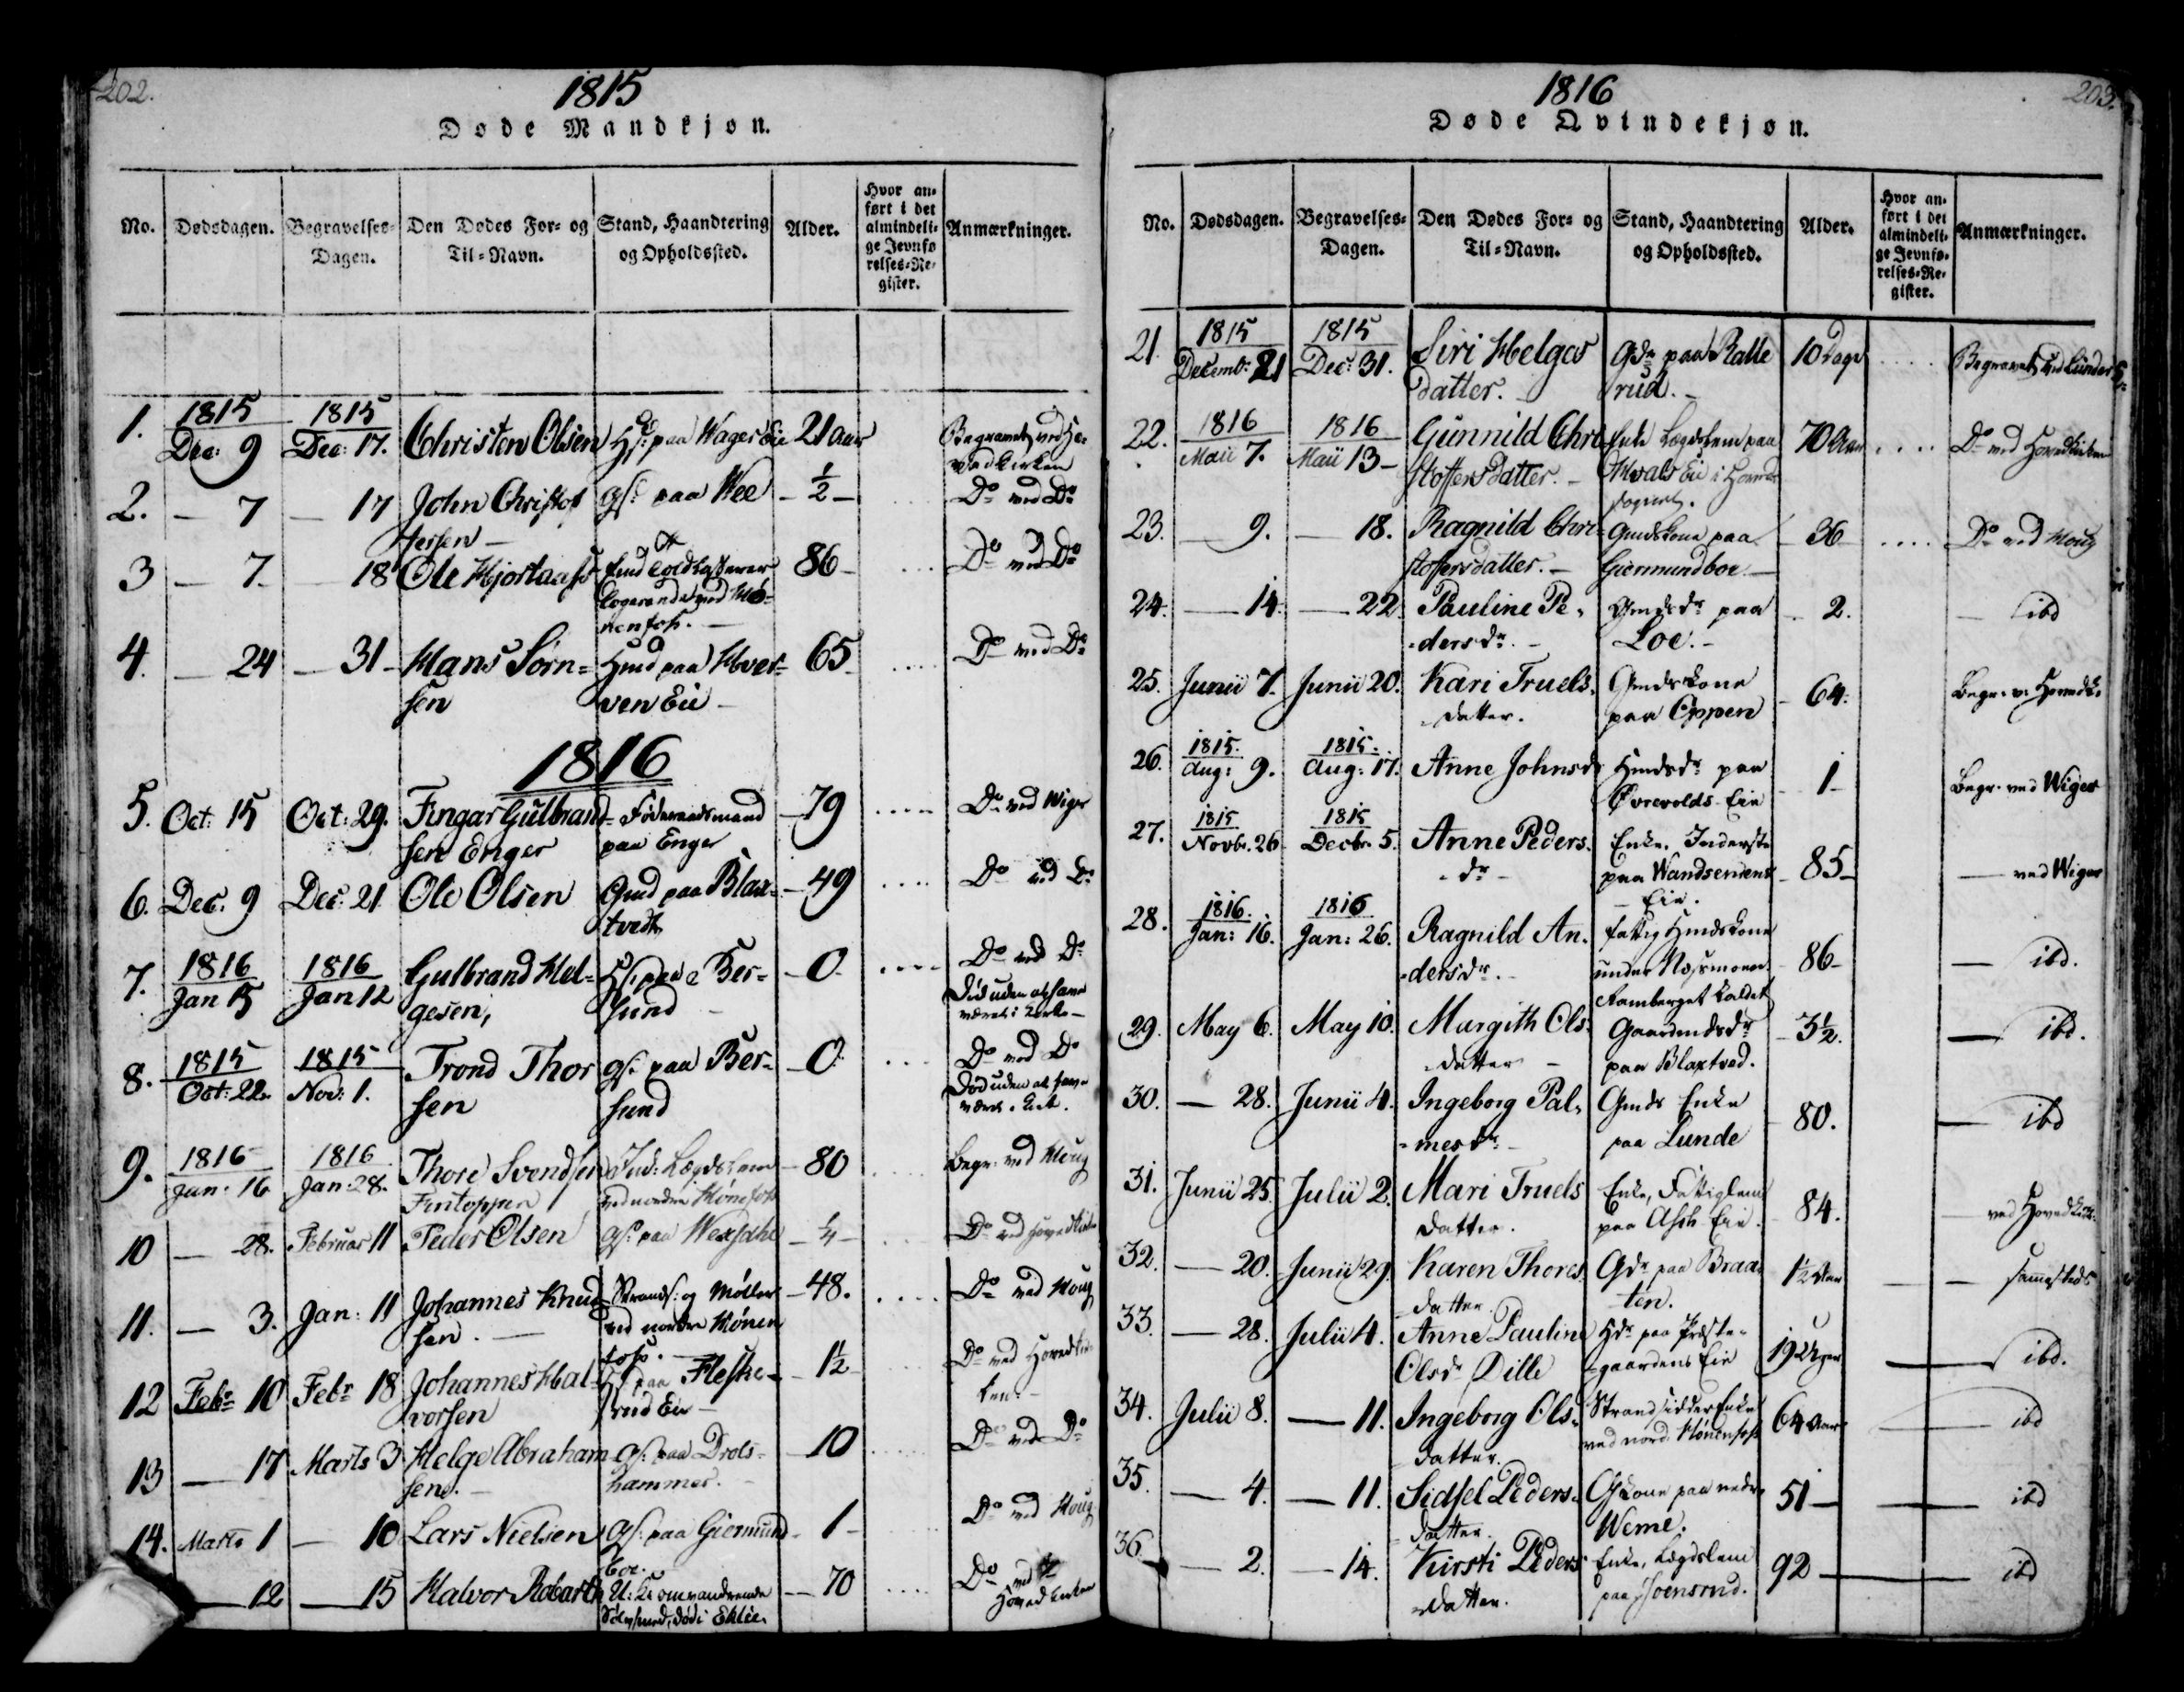 202.
1815
Døde Mandkjøn.
No. Dødsdagen. Begravelses-Dagen. Den Dødes For- og Til-Navn. Stand, Haandtering og Opholdssted. Alder. Hvor anført i det almindelige Jevnførelses-Register. Anmærkninger.
1. 1815 Dec: 9 1815 Dec: 17. Christen Olsen Hs: paa Wager Eie 21 Aar Begravet ved Hovedkirken
2. — 7 — 17 John Christoffersen — gs: paa Wee — ½ — .... Do ved Do
3 — 7. 18 Ole Hjortaas logerende ved Hønenfoss. — 86 — .... Do ved Do
4. — 24 — 31 — Hans Sørn=
sen Hmd paa Hver=
ven Eie — 65 .... Do ved Do
1816
5. Oct: 15 Oct: 29. Fingar Gulbrand=
sen Enger Føderaadsmand
paa Enger — 79 .... Do ved Wiger
6. Dec: 9 Dec: 21 Ole Olsen Gmd paa Blax=
tvedt — 49 .... Do ved Do
7. 1816 Jan 15 1816 Jan 12 Gulbrand Hel=
gesen, paa Ber=
sund — 0 .... Do ved Do
8. 1815 Oct: 22. 1815 Nov: 1. Trond Thor
sen gs: paa Ber=
sund — 0 .... Do ved Do
9. 1816 Jan: 16 1816 Jan: 28. Thore Svendsen
Fintoppen Ind: Lægdslem
ved nordre Hønefoss — 80 .... Begr: ved Houg
10 — 28. Februar 11 Peder Olsen gs: paa — ¼ — .... Do ved Hovedkirken
11. — 3. Jan: 11 Johannes Knud
sen. — Strands: og Møller
ved nordre Hønen
foss. — 48. .... Do ved Houg
12 Febr 10 Febr 18 Johannes Hal=
vorsen Hs paa Fleske=
rud Eie — 1½ .... Do ved Hovedkir
ken. —
13 — 17 Marts 3 Helge Abraham
sen. — gs: paa Drols=
hammer. — 10 .... Do ved Do
14. Marts 1 — 10 Lars Nielsen gs: paa Giermund
boe. — 1 — Do ved Houg
— 12 — 15 Halvor omvandrende
død i — 70 .... Do ved
Hovedkirken
203.
1816
Døde Qvindekjøn.
No. Dødsdagen. Begravelses-Dagen. Den Dødes For- og Til-Navn. Stand, Haandtering og Opholdssted. Alder. Hvor anført i det almindelige Jevnførelses-Register. Anmærkninger.
21. 1815 Decembr: 21 1815 Dec: 31. Siri Helges
datter. — Gdr paa Ralle
rud. — 10 Dage .... Begravet ved Lunder
22. 1816 Maii 7. 1816 Maii 13 — Gunnild Chri
stoffersdatter. — Enke Lægdslem paa
Hvals Eie i Hoved
sognet. 70 Aar .... Do ved Hovedkirken
23. — 9. — 18. Ragnild Chri=
stoffersdatter. — Gmdskone paa
Giermundboe. — 36 .... Do ved Houg
24. — 14. — 22. Pauline Pe=
dersdr. — Gmdsdr paa
Loe. — 2. — ibd
25. Junii 7. Junii 20. Kari Truels
datter. Gmdskone
paa Oppen — 64. Begr. v. Hovedk.
26. 1815. Aug: 9. 1815. Aug: 17. Anne Johnsdr Hmdsdr paa
Øvrevolds Eie 1 — Begr. ved Wiger
27. 1815 Novbr. 26 1815 Decbr. 5. Anne Peders
dr — Enke. Inderste
paa
Eie. 85 — — ved Wiger
28. 1816. Jan: 16. 1816 Jan: 26. Ragnild An=
dersdr. — fattig Hmdskone
under
Ramberget kaldet 86 — — ibd.
29. May 6. May 10. Margith Ols
datter — Gaardmdsdr
paa Blaxtved. — 3½. — ibd.
30. — 28. Junii 4. Ingeborg Pal=
mesdr — Gmds Enke
paa Lunde 80. — ibd
31. Junii 25. Julii 2. Mari Truels
datter. Enke, Fattiglem
paa Ask Eie. 84. — ved Hovedkirk.
32. — 20. Junii 29. Karen Thores
datter. Gdr paa Braa=
ten. 1½ Aar — sammesteds
33. — 28. Julii 4. Anne Pauline
Olsdr Dille Hdr paa Præste=
gaardens Eie 19 Uger — ibd.
34. Julii 8. — 11. Ingeborg Ols
datter. Strandsidder Enke
ved nord. Hønenfoss 64 Aar — ibd
35. — 4. — 11. Sidsel Peders
datter. Gkone paa nedre
Weme. 51 — — ibd
36. — 2. — 14. Kirsti Peders
datter. Enke, Lægdslem
paa Soensrud. 92 — — ibd